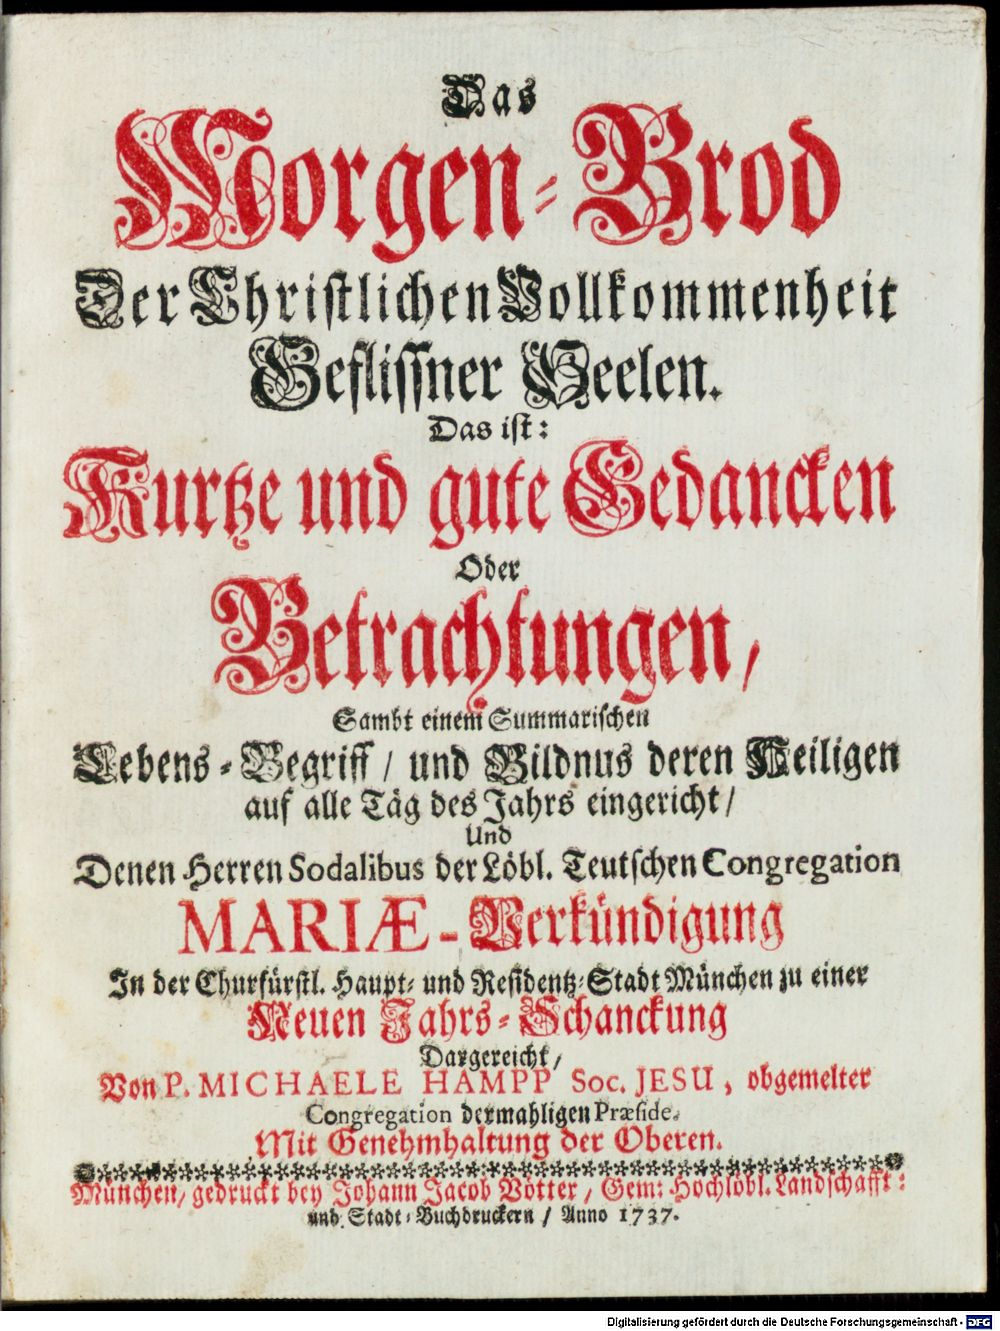 Das
Morgen-Brod
Der Christlichen Vollkommenheit
Geflissner Seelen.
Das ist:
Kurtze und gute Gedancken
Oder
Betrachtungen/
Sambt einem Summarischen
Lebens-Begriff/ und Bildnus deren Heiligen
auf alle Täg des Jahrs eingericht/
Und
Denen Herren Sodalibus der Löbl. Teutschen Congregation
MARIÆ-Verkündigung
In der Churfürstl. Haupt- und Residentz-Stadt München zu einer
Neuen Jahrs-Schanckung
Dargereicht/
Von P. MICHAELE HAMPP Soc. JESU, obgemelter
Congregation dermahligen Præside.
Mit Genehmhaltung der Oberen.
München/ gedruckt bey Johann Jacob Vötter/ Gem: Hochlöbl. Landschafft:
und Stadt-Buchdruckern/ Anno 1737.
Digitalisierung gefördert durch die Deutsche Forschungsgemeinschaft - DFG